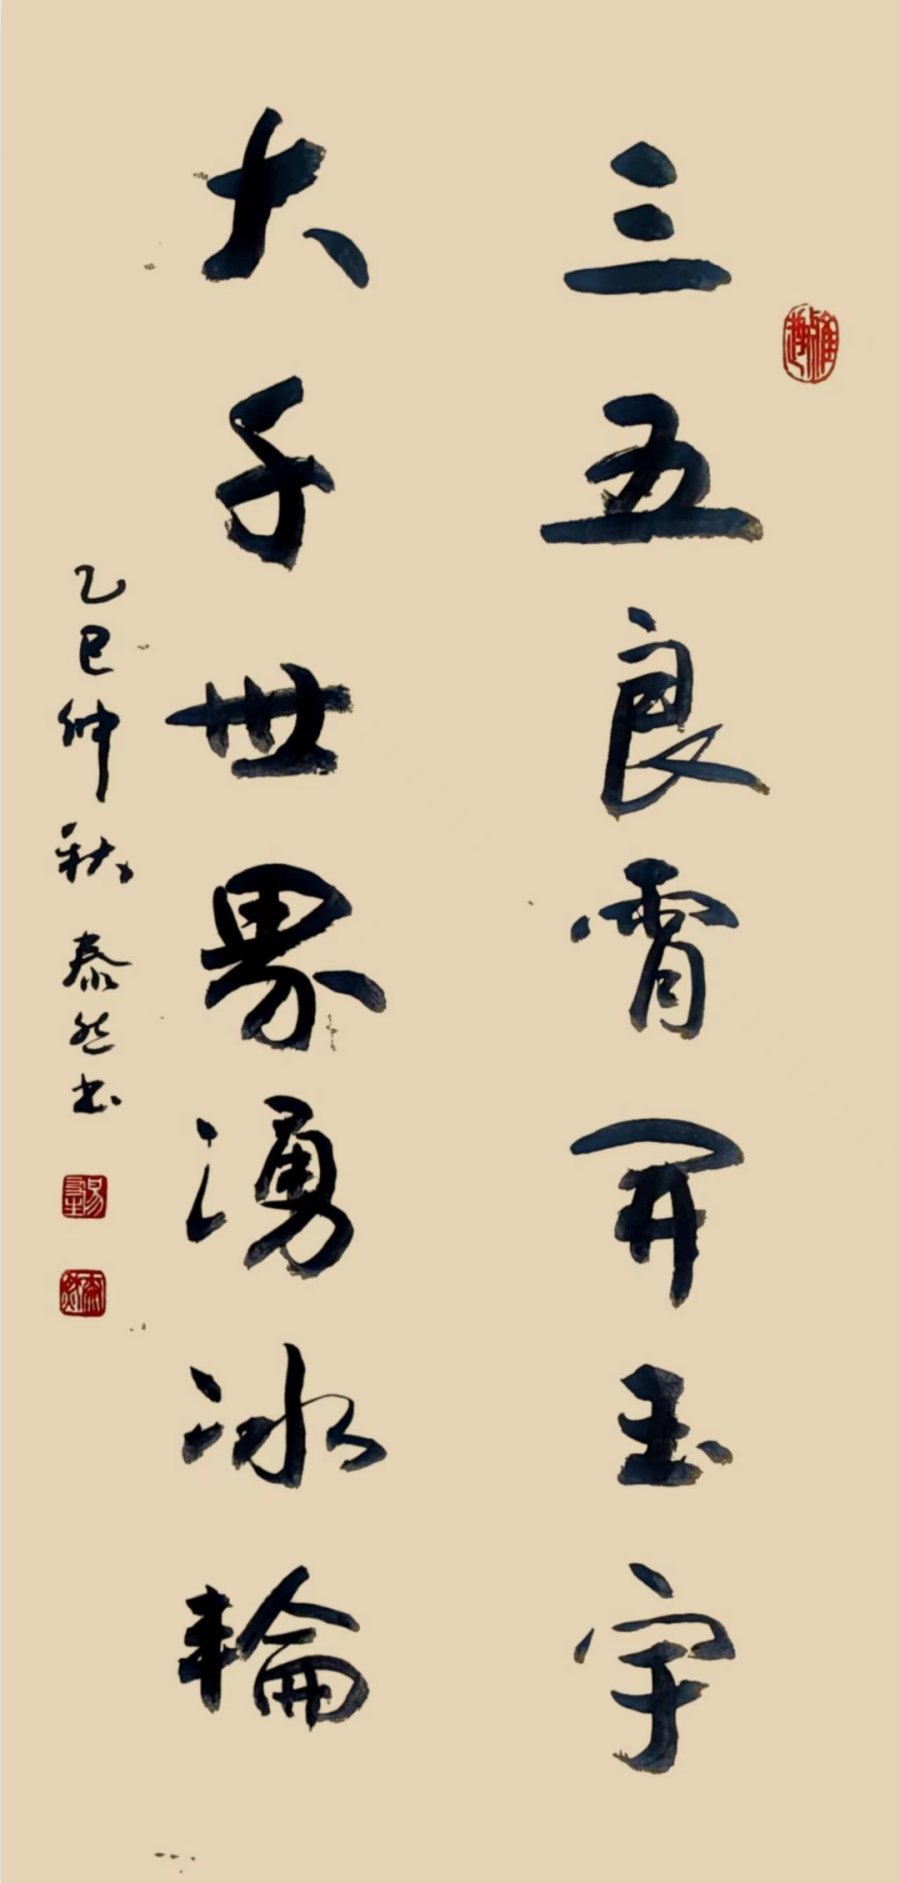 三五良霄開玉宇
大千世界湧冰輪
乙巳仲秋泰然书